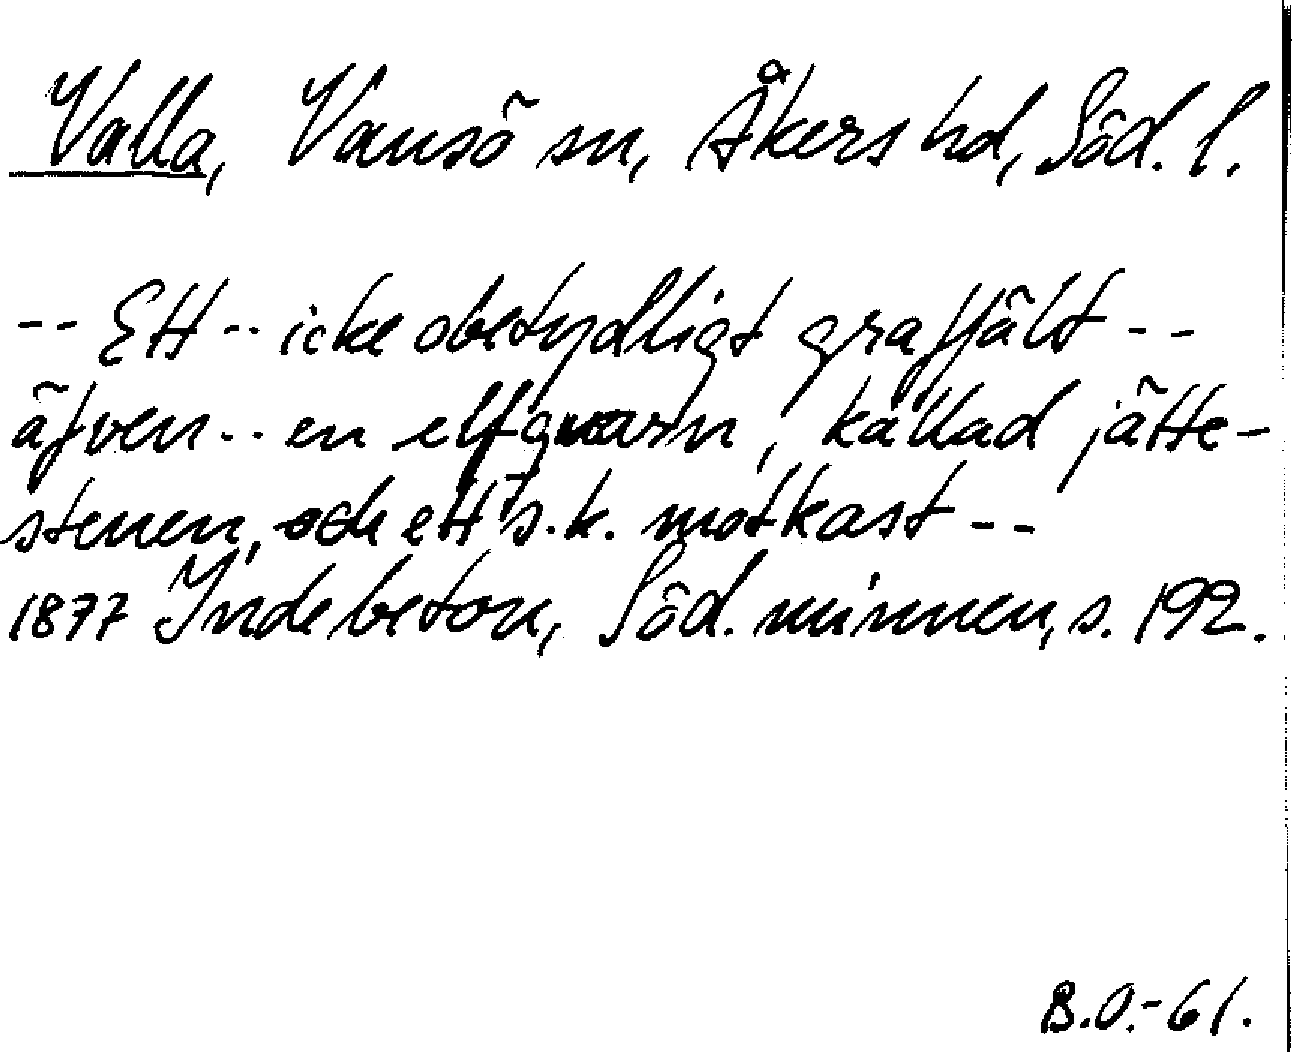 Valla, Vansö sn, Åkers hd, Söd. l.
-- Ett -- icke obetydligt graffält --
äfven -- en elfqvarn, kallad jätte-
stenen, och ett s.k. motkast --
1877 Indebetou, Söd. minnen, s. 192.
B.O.-61.